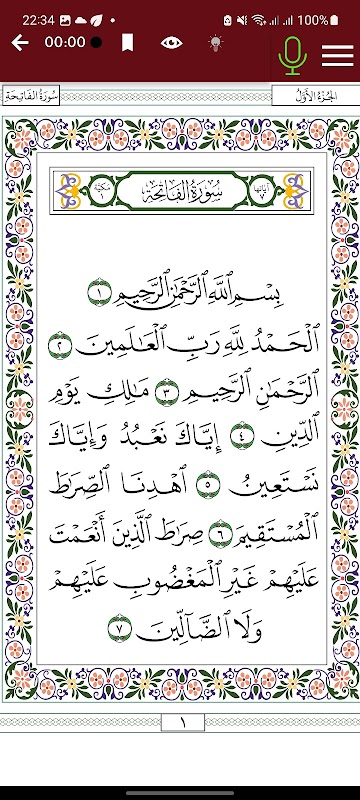 22:34 100%
00:00
الجزء الأول سورة الفاتحة
آياتها ٧ سورة الفاتحة مكية ١
بِسْمِ ٱللَّهِ ٱلرَّحْمَٰنِ ٱلرَّحِيمِ ١
ٱلْحَمْدُ لِلَّهِ رَبِّ ٱلْعَٰلَمِينَ ٢
ٱلرَّحْمَٰنِ ٱلرَّحِيمِ ٣ مَٰلِكِ يَوْمِ
ٱلدِّينِ ٤ إِيَّاكَ نَعْبُدُ وَإِيَّاكَ
نَسْتَعِينُ ٥ ٱهْدِنَا ٱلصِّرَٰطَ
ٱلْمُسْتَقِيمَ ٦ صِرَٰطَ ٱلَّذِينَ أَنْعَمْتَ
عَلَيْهِمْ غَيْرِ ٱلْمَغْضُوبِ عَلَيْهِمْ
وَلَا ٱلضَّآلِّينَ ٧
١